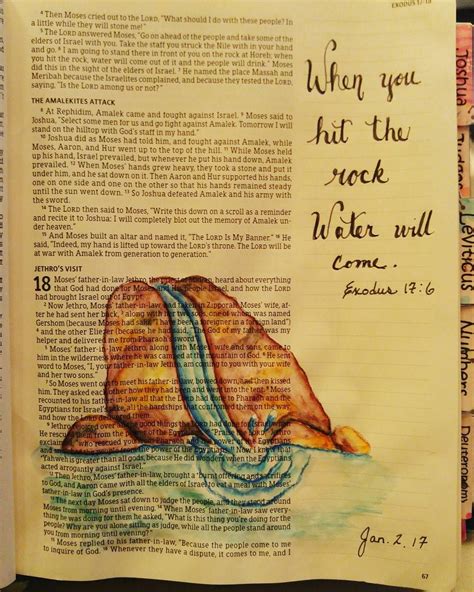 EXODUS
4 Then Moses cried out to the LORD, "What should I do with these people? In
a little while they will stone me!"
5 The LORD answered Moses, "Go on ahead of the people and take some of the
elders of Israel with you. Take the staff you struck the Nile with in your hand
and go. 6 I am going to stand there in front of you on the rock at Horeb; when
you hit the rock, water will come out of it and the people will drink." Moses
did this in the sight of the elders of Israel. 7 He named the place Massah and
Meribah because the Israelites complained, and because they tested the LORD,
saying, "Is the LORD among us or not?"
THE AMALEKITES ATTACK
8 At Rephidim, Amalek came and fought against Israel. 9 Moses said to
Joshua, "Select some men for us and go fight against Amalek. Tomorrow I will
stand on the hilltop with God's staff in my hand."
10 Joshua did as Moses had told him, and fought against Amalek, while
Moses, Aaron, and Hur went up to the top of the hill. 11 While Moses held
up his hand, Israel prevailed, but whenever he put his hand down, Amalek
prevailed. 12 When Moses' hands grew heavy, they took a stone and put it
under him, and he sat down on it. Then Aaron and Hur supported his hands,
one on one side and one on the other so that his hands remained steady
until the sun went down. 13 So Joshua defeated Amalek and his army with
the sword.
14 The LORD then said to Moses, "Write this down on a scroll as a reminder
and recite it to Joshua: I will completely blot out the memory of Amalek un-
der heaven."
15 And Moses built an altar and named it, "The LORD Is My Banner." 16 He
said, "Indeed, my hand is lifted up toward the LORD's throne. The LORD will be
at war with Amalek from generation to generation."
JETHRO'S VISIT
18 Moses' father-in-law Jethro, the priest of Midian, heard about everything
that God had done for Moses and His people Israel, and how the LORD
had brought Israel out of Egypt.
2 Now Jethro, Moses' father-in-law, had taken in Zipporah, Moses' wife, af-
ter he had sent her back, along with her two sons, one of whom was named
Gershom (because Moses had said, "I have been a foreigner in a foreign land")
and the other Eliezer (because he had said, "The God of my father was my
helper and delivered me from Pharaoh's sword").
5 Moses' father-in-law Jethro, along with Moses' wife and sons, came to him
in the wilderness where was camped at the mountain of God. He sent
word to Moses, "I, your father-in-law Jethro, am coming to you with your wife
and her two sons."
7 So Moses went out to meet his father-in-law, bowed down, and then kissed
him. They asked each other how they had been and went into the tent.
recounted to his father-in-law all that the LORD had done to Pharaoh and the
Egyptians for Israel's sake, all the hardships that confronted them on the way,
and how the LORD delivered them.
9 Jethro rejoiced over all the good things the LORD had done
Yahweh is greater than all gods, because He did wonders when the Egyptians
acted arrogantly against Israel."
12 Then Jethro, Moses' father-in-law, brought a burnt offering and sacrifices
to God, and Aaron came with all the elders of Israel to eat a meal with Moses'
father-in-law in God's presence.
13 The next day Moses sat down to judge the people, and they stood around
Moses from morning until evening. 14 When Moses' father-in-law saw every-
thing he was doing for them he asked, "What is this thing you're doing for the
people? Why are you alone sitting as judge, while all the people stand around
you from morning until evening?"
15 Moses replied to his father-in-law, "Because the people come to me
to inquire of God. 16 Whenever they have a dispute, it comes to me, and I
67
When you
hit the
rock
Water will
come.
Exodus 17:6
Jan. 2, 17
Joshua
Judges
Leviticus
Numbers
Deuteronomy